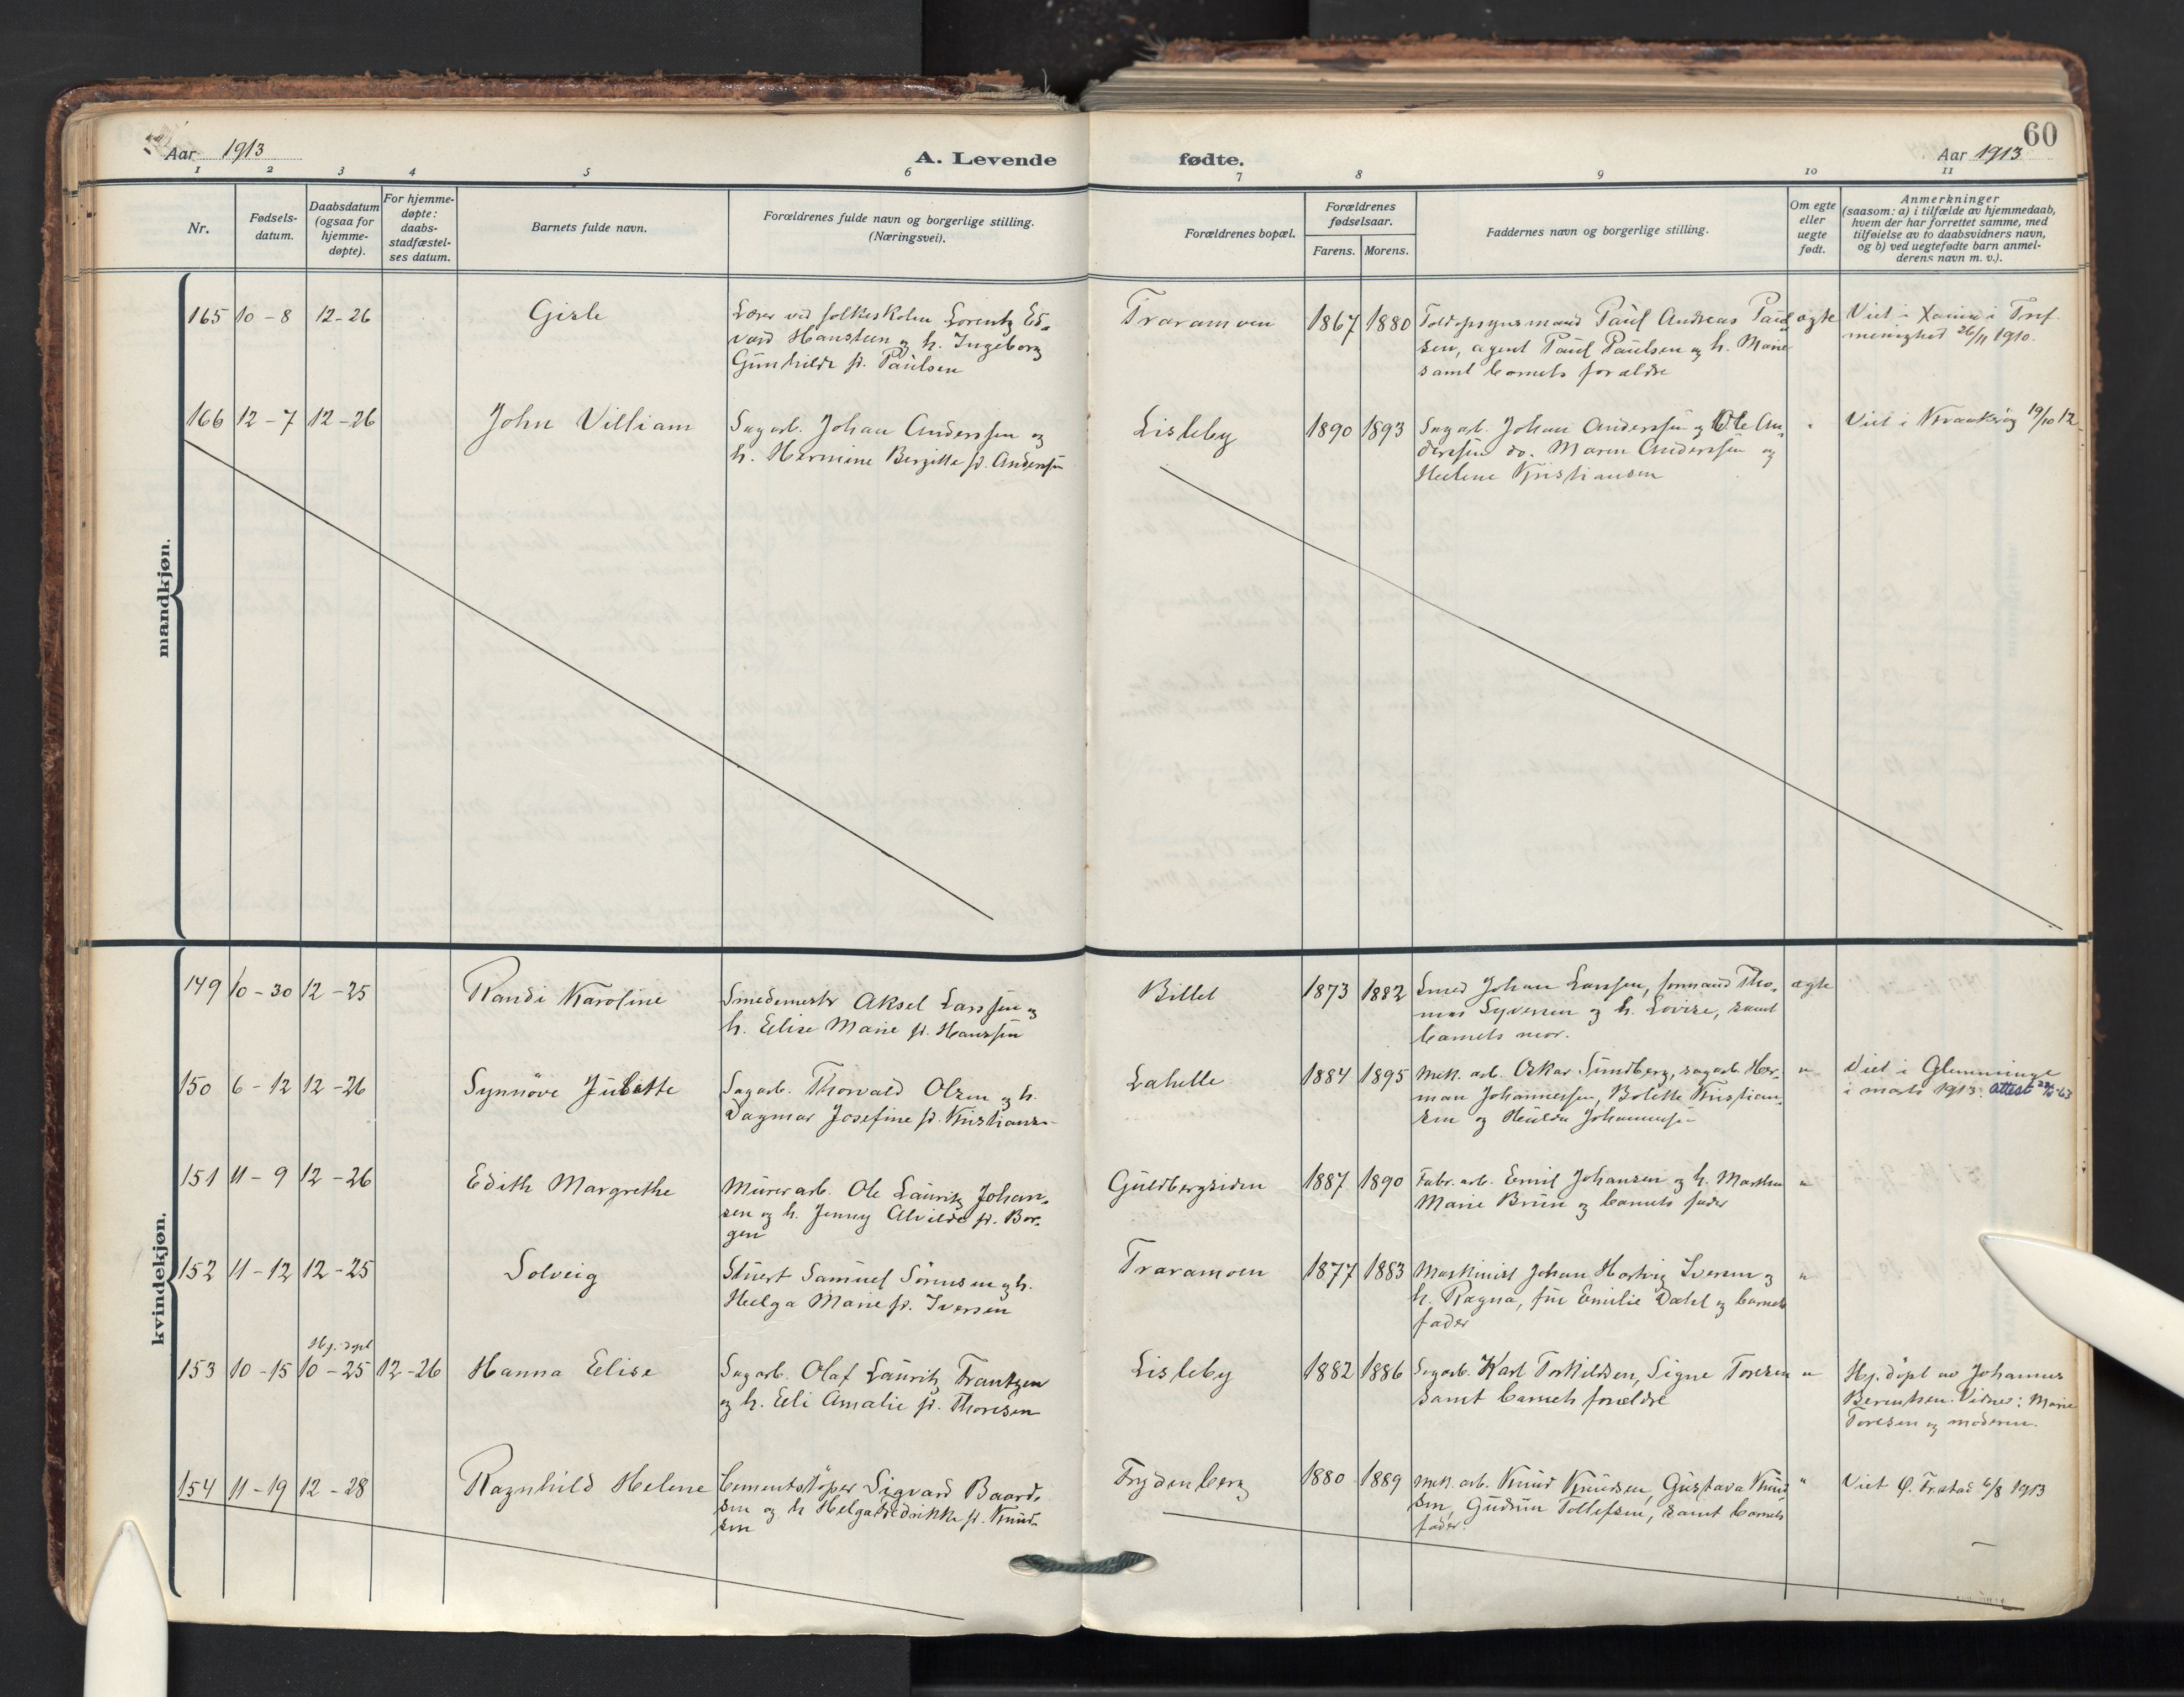 Aar 1913
A. Levende
fødte.
60
Aar 1913
1 2 3 4 5 6 7 8 9 10 11
Nr.
Fødsels-
datum.
Daabsdatum
(ogsaa for
hjemme-
døpte).
For hjemme-
døpte:
daabs-
stadfæstel-
ses datum.
Barnets fulde navn.
Forældrenes fulde navn og borgerlige stilling.
(Næringsvei).
Forældrenes bopæl.
Forældrenes
fødselsaar.
Farens. Morens.
Faddernes navn og borgerlige stilling.
Om egte
eller
uegte
født.
Anmerkninger
(saasom: a) i tilfælde av hjemmedaab,
hvem der har forrettet samme, med
tilføielse av to daabsvidners navn,
og b) ved uegtefødte barn anmel-
derens navn m. v.).
mandkjøn.
165 10-8 12-26 Gisle
Lærer ved folkeskolen Lorentz Ed-
vard Hansteen og h. Ingeborg
Gunhilde f. Paulsen
Traramoen 1867 1880
Toldopsynsmand Paul Andreas Paul
sen, agent Paul Paulsen og h. Marie
samt barnets forældre
ægte
Viet i
menighed 26/11 1910.
166 12-7 12-26 John Villiam
Sagarb. Johan Anderssen og
h. Hermine Bergitte f. Anderssen
Lisleby 1890 1893
Sagarb. Johan Anderssen og Ole An-
derssen do. Maren Anderssen og
Helene Kristiansen
"
Viet i Kraakerøy 19/10 12
kvindekjøn.
149 10-30 12-25 Randi Karoline
Smedemester Aksel Larssen og
h. Elise Marie f. Hanssen
Billet 1873 1882
Smed Johan Larssen, formand Tho-
mas Syversen og h. Lovise, samt
barnets mor.
ægte
150 6-12 12-26 Synnöve Julette
Sagarb. Thorvald Olsen og h.
Dagmar Josefine f. Kristiansen
Lahelle 1884 1895
Mek. arb. Oskar Sundberg, sagarb. Her-
man Johannessen, Bolette Kristian-
sen og Hulda Johannessen
"
Viet i Glemminge
i mars 1913. attest
151 11-9 12-26 Edith Margrethe
Murerarb. Ole Lauritz Johan-
sen og h. Jenny Alvilde f. Bor-
gen
Guldbergsiden 1887 1890
Fabr. arb. Emil Johansen og h. Marthea
Marie Bruun og barnets fader
"
152 11-12 12-25 Solveig
Stuert Samuel Sörensen og h.
Helga Marie f. Iversen
Traramoen 1877 1883
Maskinist Johan Hartvig Iversen og
h. Ragna, fru Emilie Dahl og barnets
fader
"
Hj. døpt
153 10-15 10-25 12-26 Hanna Elise
Sagarb. Olaf Lauritz Frantzen
og h. Eli Amalie f. Thoresen
Lisleby 1882 1886
Sagarb. Karl Torkildsen, Signe Toresen
samt barnets forældre
"
Hj. døpt av Johannes
Berentsen. Vidner: Marie
Toresen og moderen.
154 11-19 12-28 Ragnhild Helene
Cementstöper Sigvard Baard-
sen og h. Helga Fredrikke f. Knud-
sen
Frydenberg 1880 1889
Mek. arb. Knud Knudsen, Gustava Knud
sen, Gudrun Tollefsen, samt barnets
fader.
"
Viet Ø. Fr.stad 6/8 1913